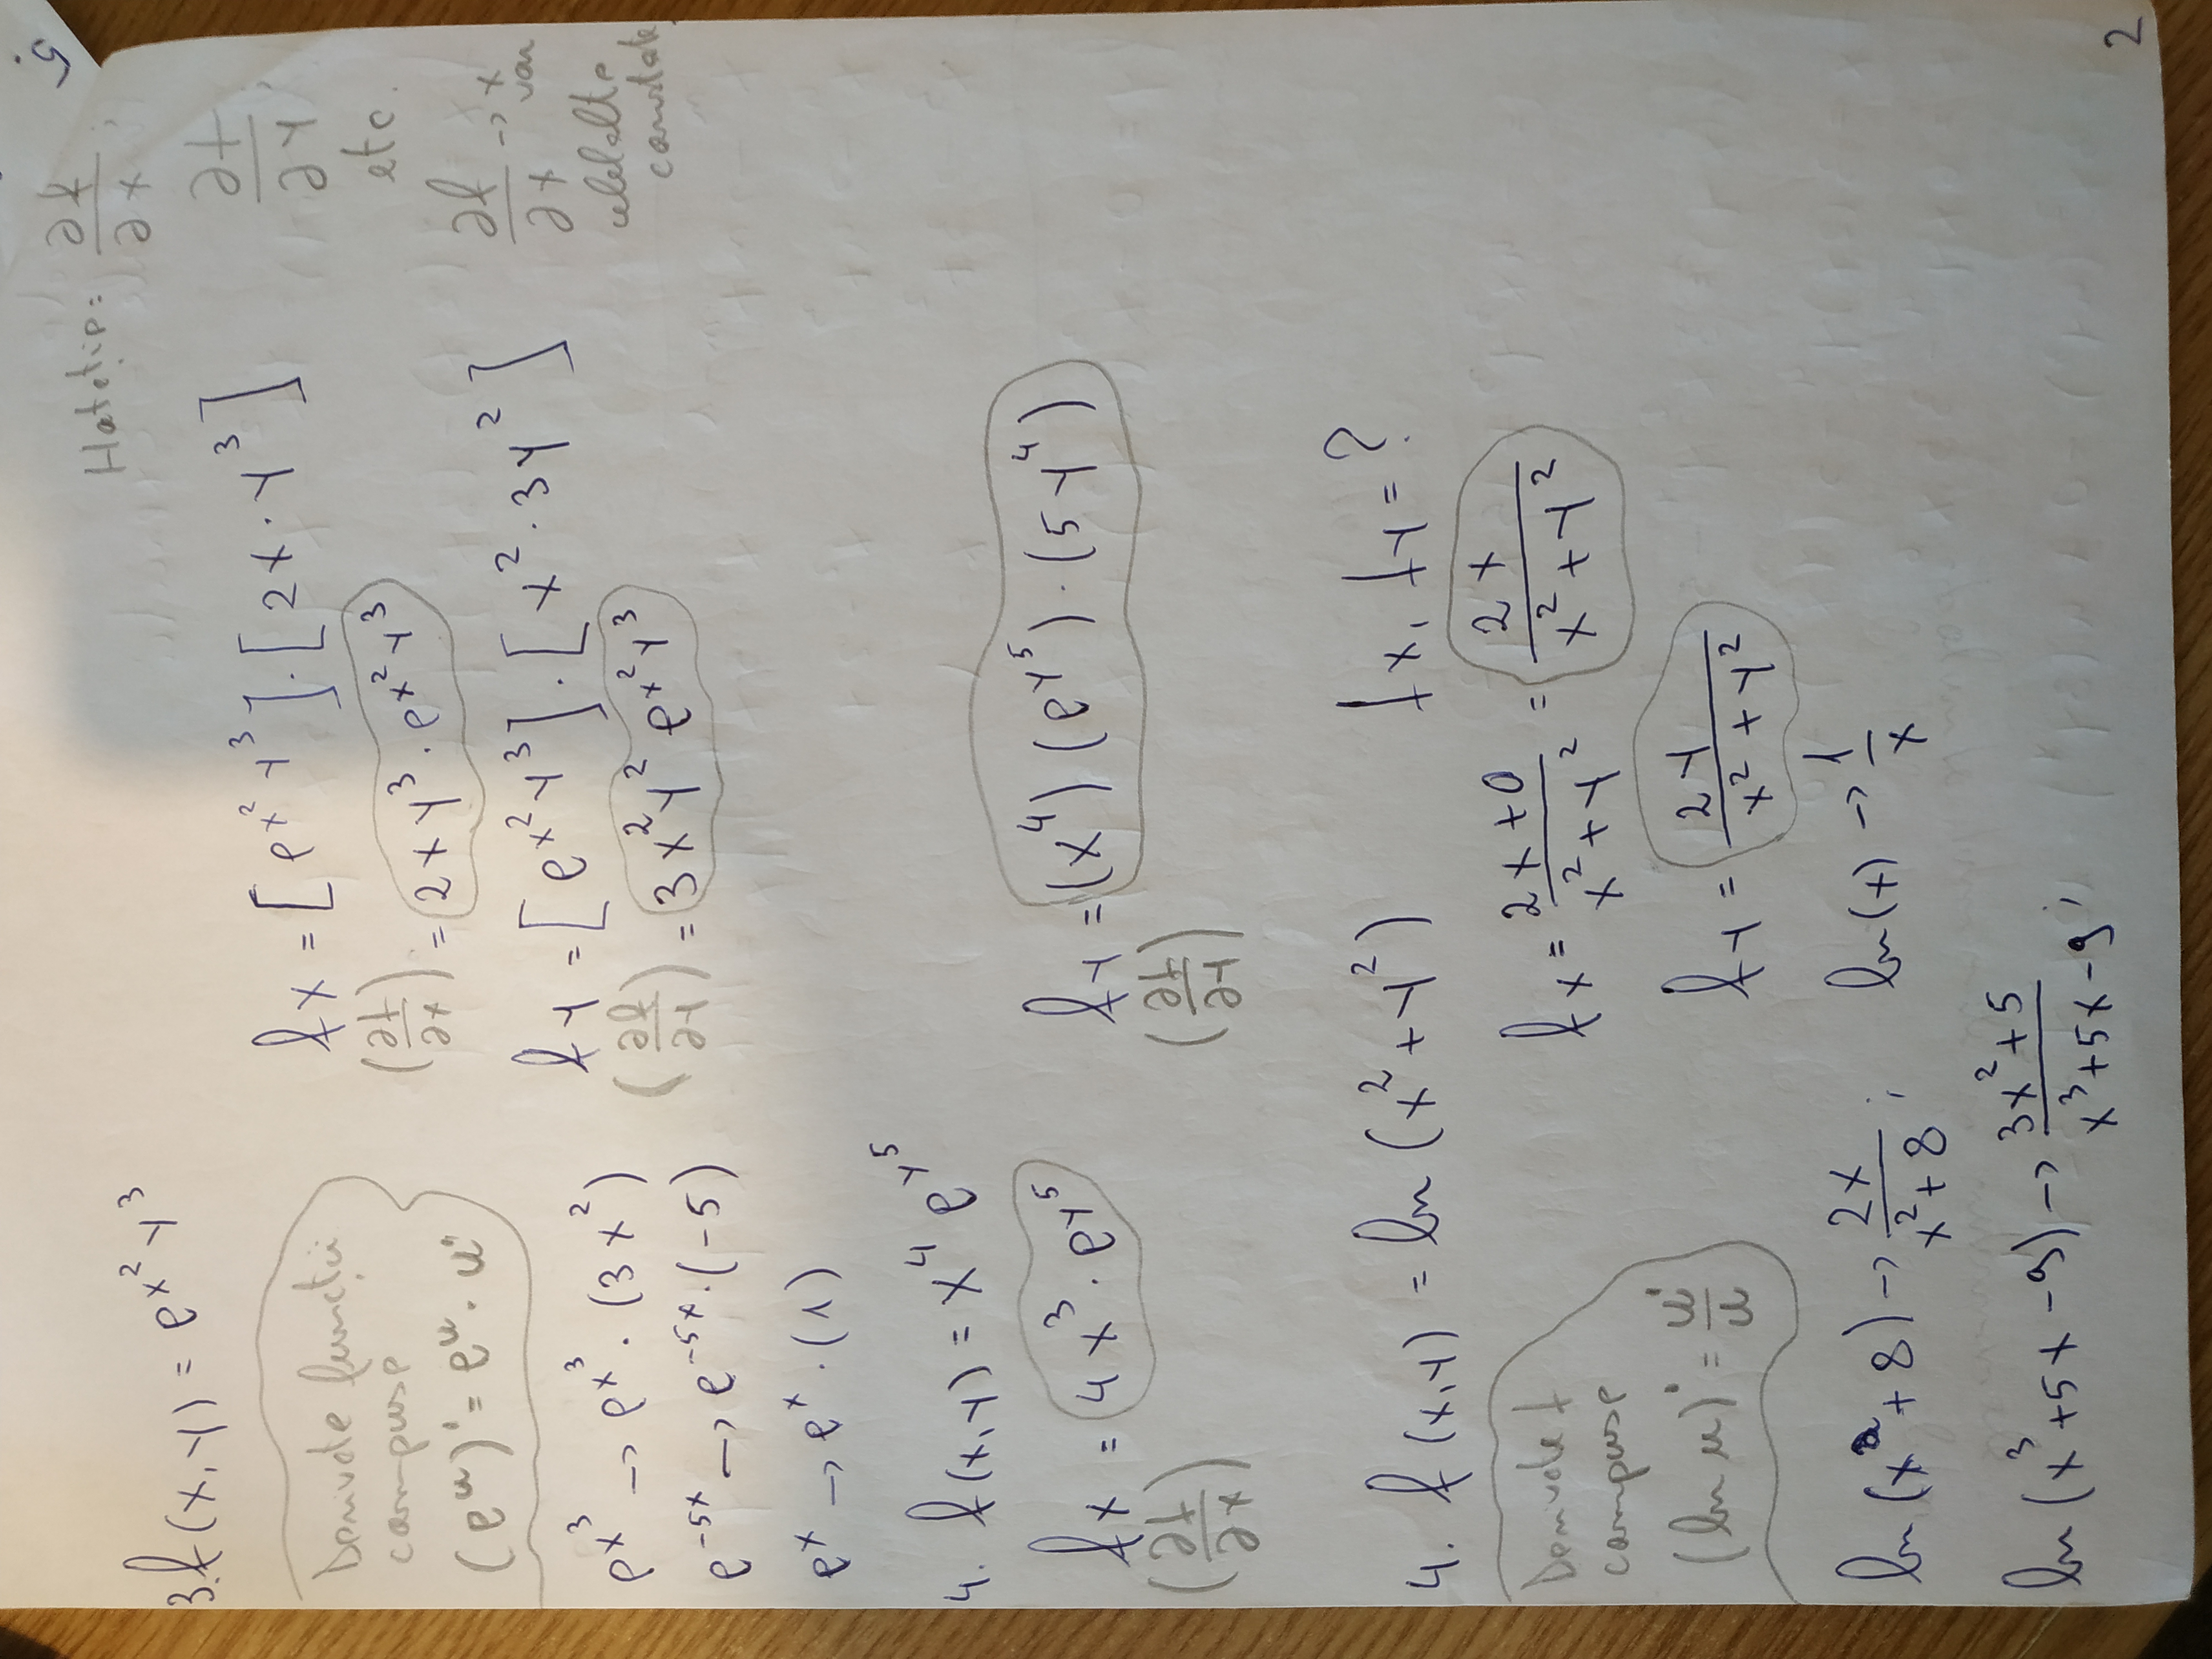 5.
Notații: ∂f/∂x ;
∂f/∂y ;
etc.
∂f/∂x → x var
celelalte
constante
3. f(x,y) = e^{x²y³}
Derivate funcții
compuse
(e^u)' = e^u · u'
fx = [e^{x²y³}] · [2x · y³]
(∂f/∂x) = 2xy³ · e^{x²y³}
fy = [e^{x²y³}] · [x² · 3y²]
(∂f/∂y) = 3x²y² e^{x²y³}
e^{x³} → e^{x³} · (3x²)
e^{-5x} → e^{-5x} · (-5)
e^x → e^x · (1)
4. f(x,y) = x⁴ e^{y⁵}
fx = 4x³ · e^{y⁵}
(∂f/∂x)
fy = (x⁴)(e^{y⁵}) · (5y⁴)
(∂f/∂y)
4. f(x,y) = ln(x²+y²) fx, fy = ?
Derivate f
compuse
(ln u)' = u'/u
fx = (2x+0)/(x²+y²) = 2x/(x²+y²)
fy = 2y/(x²+y²)
ln(x²+8) → 2x/(x²+8) ; ln(x) → 1/x
ln(x³+5x-9) → (3x²+5)/(x³+5x-9) ;
2